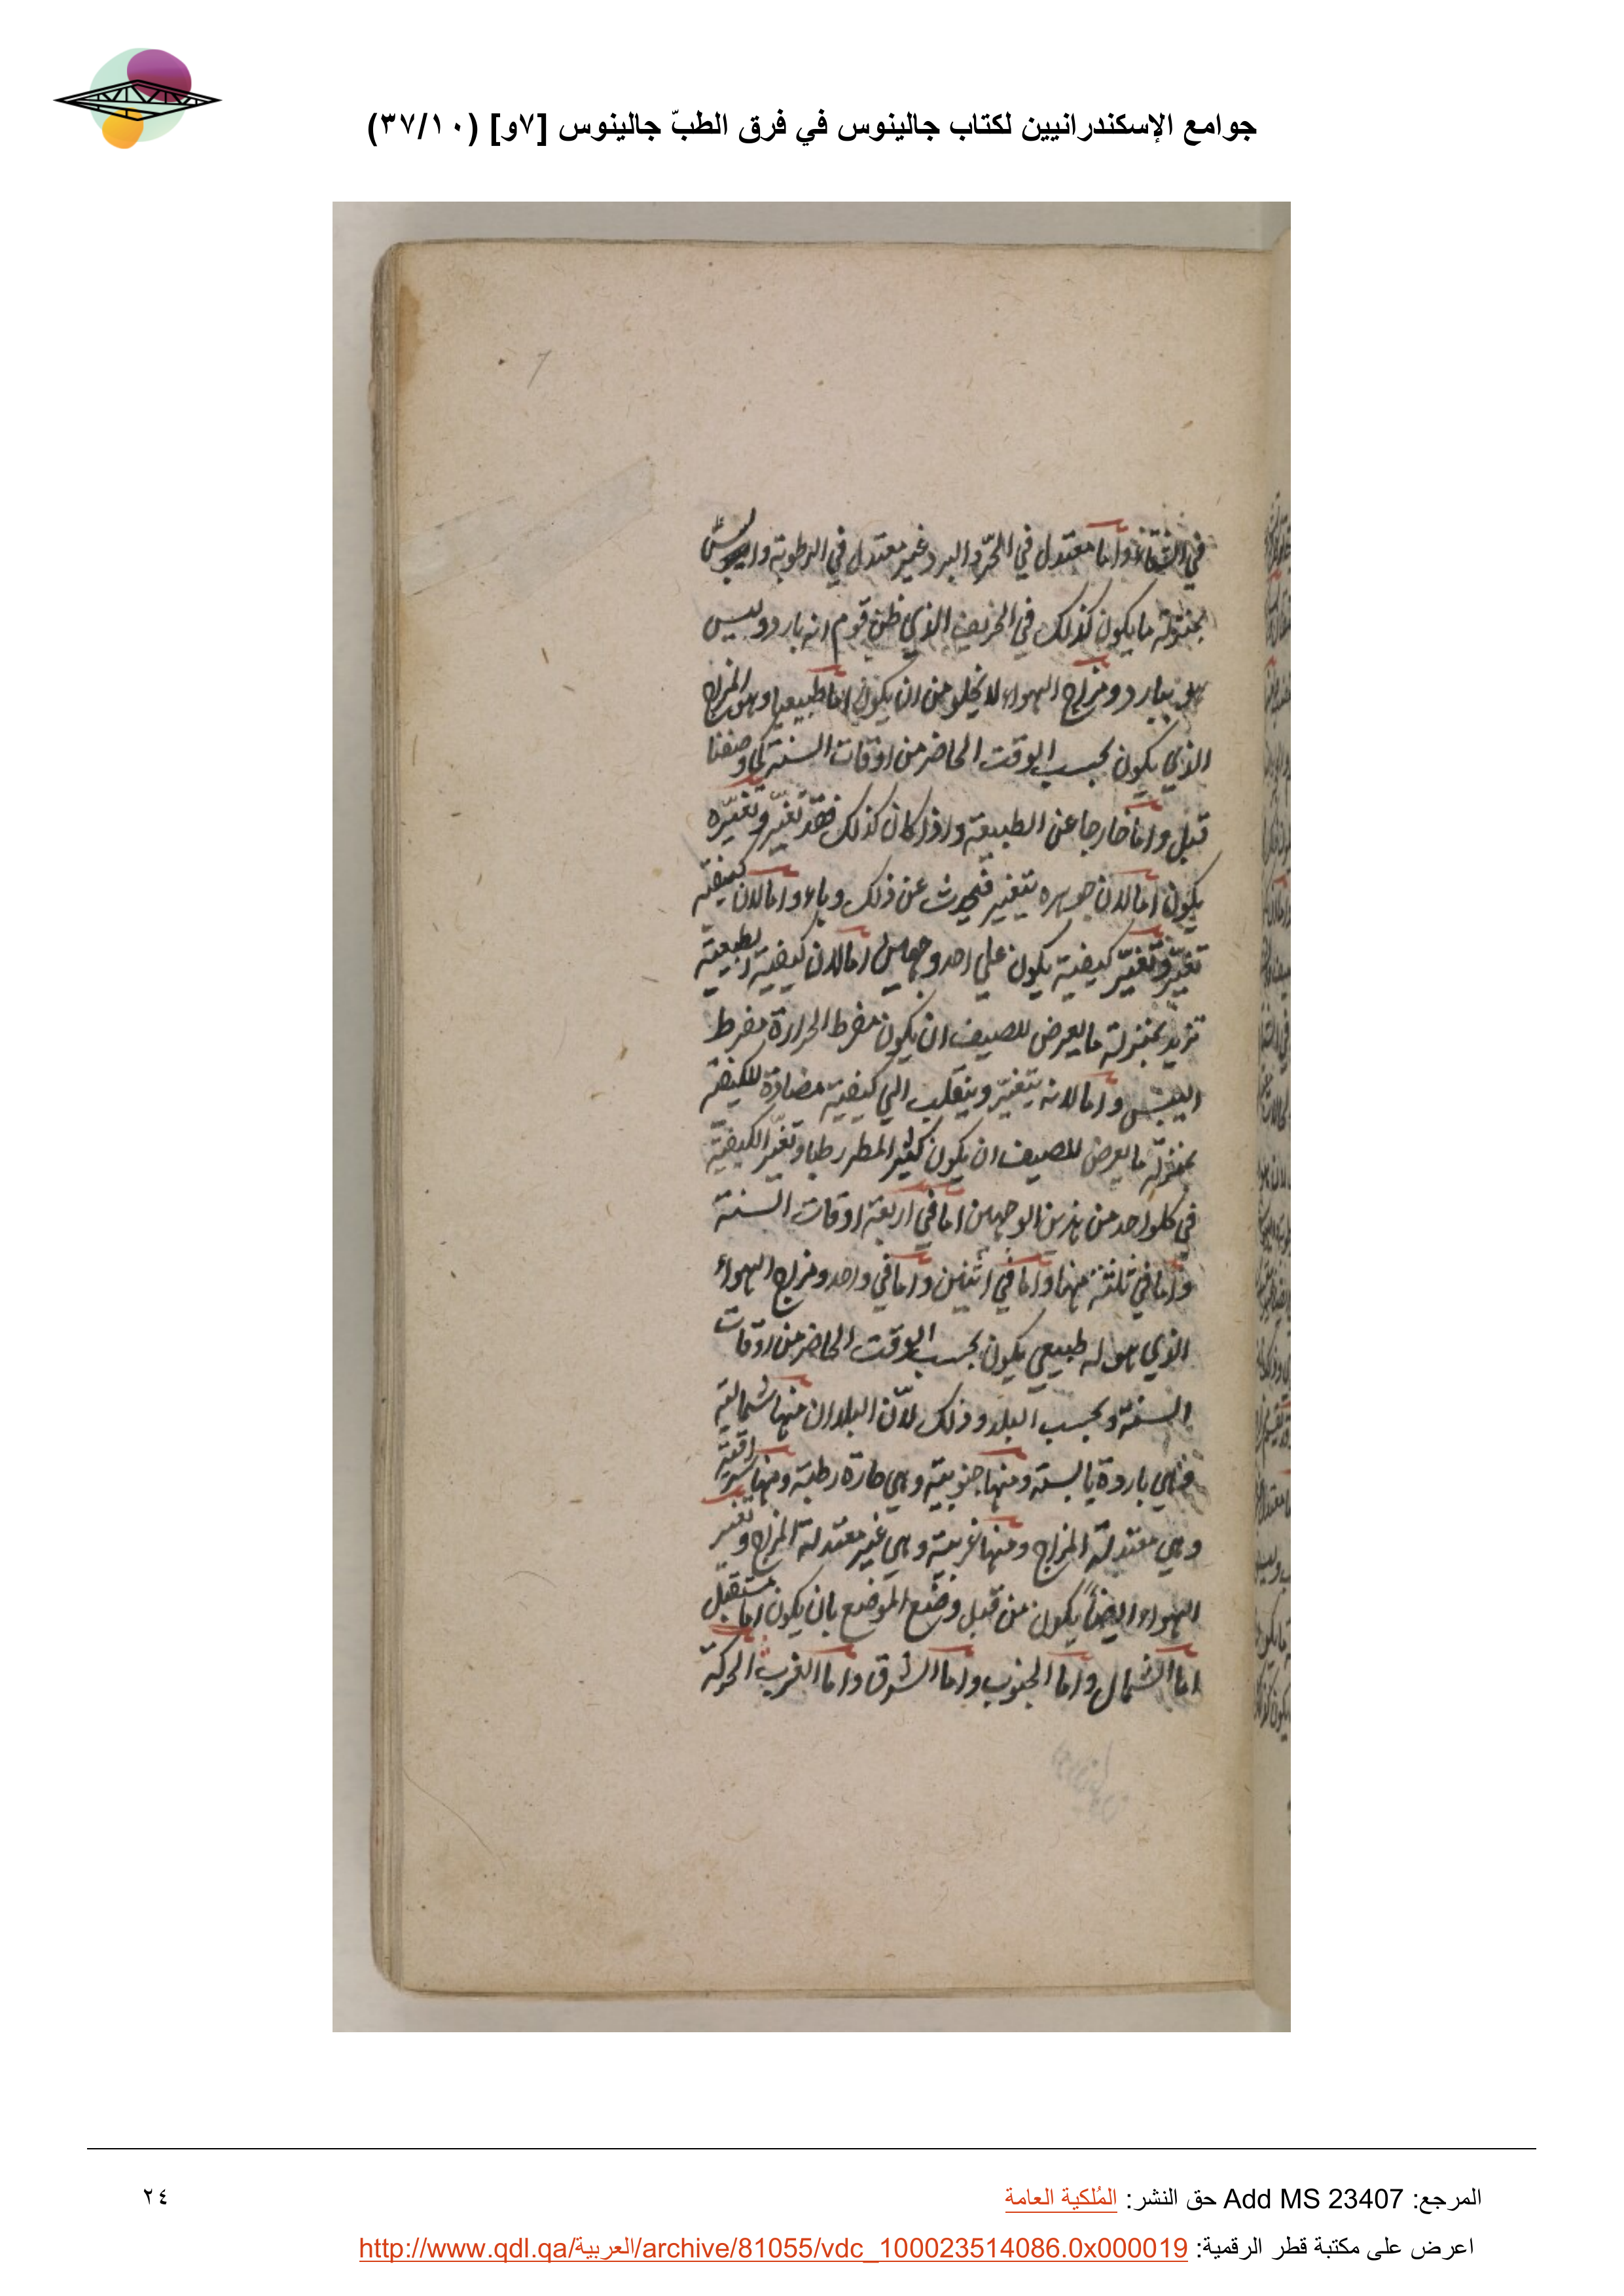 جوامع الإسكندرانيين لكتاب جالينوس في فرق الطبّ جالينوس [٧و] (٣٧/١٠)
7
في الشتاء واما معتدل في الحرّ والبرد غير معتدل في الرطوبة واليبس
بمنزلة ما يكون كذلك في الخريف الذي ظن قوم انه بارد وليس
هو ببارد ومزاج الهواء لا يخلو من ان يكون اما طبيعيا وهو المزاج
الذي يكون بحسب الوقت الحاضر من اوقات السنة كما وصفنا
قبل واما خارجا عن الطبيعة واذا كان كذلك فقد تغيّر وتغيّره
يكون اما لان جوهره يتغير فيحدث عن ذلك وباء واما لان كيفيته
تغيّر وتغيّر كيفية يكون علي احد وجهين اما لان كيفية طبيعية
تزيد بمنزلة ما يعرض للصيف ان يكون مفرط الحرارة مفرط
اليبس واما لانه يتغيّر وينقلب الي كيفية مضادة للكيفية
بمنزلة ما يعرض للصيف ان يكون كثير المطر رطبا وتغيّر الكيفية
في كلواحد من هذين الوجهين اما في اربعة اوقات السنة
واما في ثلثة منها واما في اثنين واما في واحد ومزاج الهواء
الذي هو له طبيعي يكون بحسب الوقت الحاضر من اوقات
السنة وبحسب البلد وذلك لانّ البلدان منها شمالية
وهي باردة يابسة ومنها جنوبية وهي حارة رطبة ومنها شرقية
وهي معتدلة المزاج ومنها غربية وهي غير معتدلة المزاج وتغير
الهواء ايضاً يكون من قبل وضع الموضع بان يكون اما مستقبل
اما الشمال واما الجنوب واما الشرق واما الغرب الحركة
المرجع: Add MS 23407 حق النشر: المُلكية العامة
٢٤
اعرض على مكتبة قطر الرقمية: http://www.qdl.qa/العربية/archive/81055/vdc_100023514086.0x000019